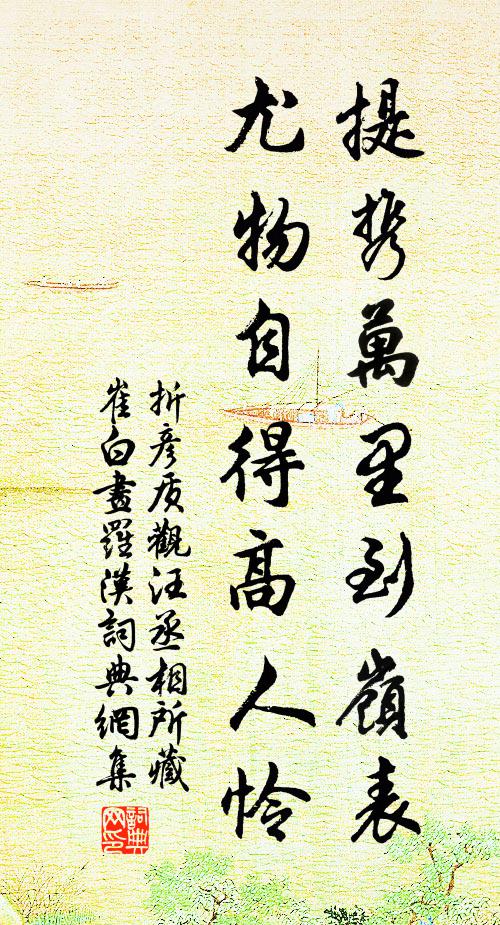 提携萬里到嶺表
尤物自得高人怜
折彦质觀汪丞相所藏
崔白畫羅漢詞典網集
詞典
网印